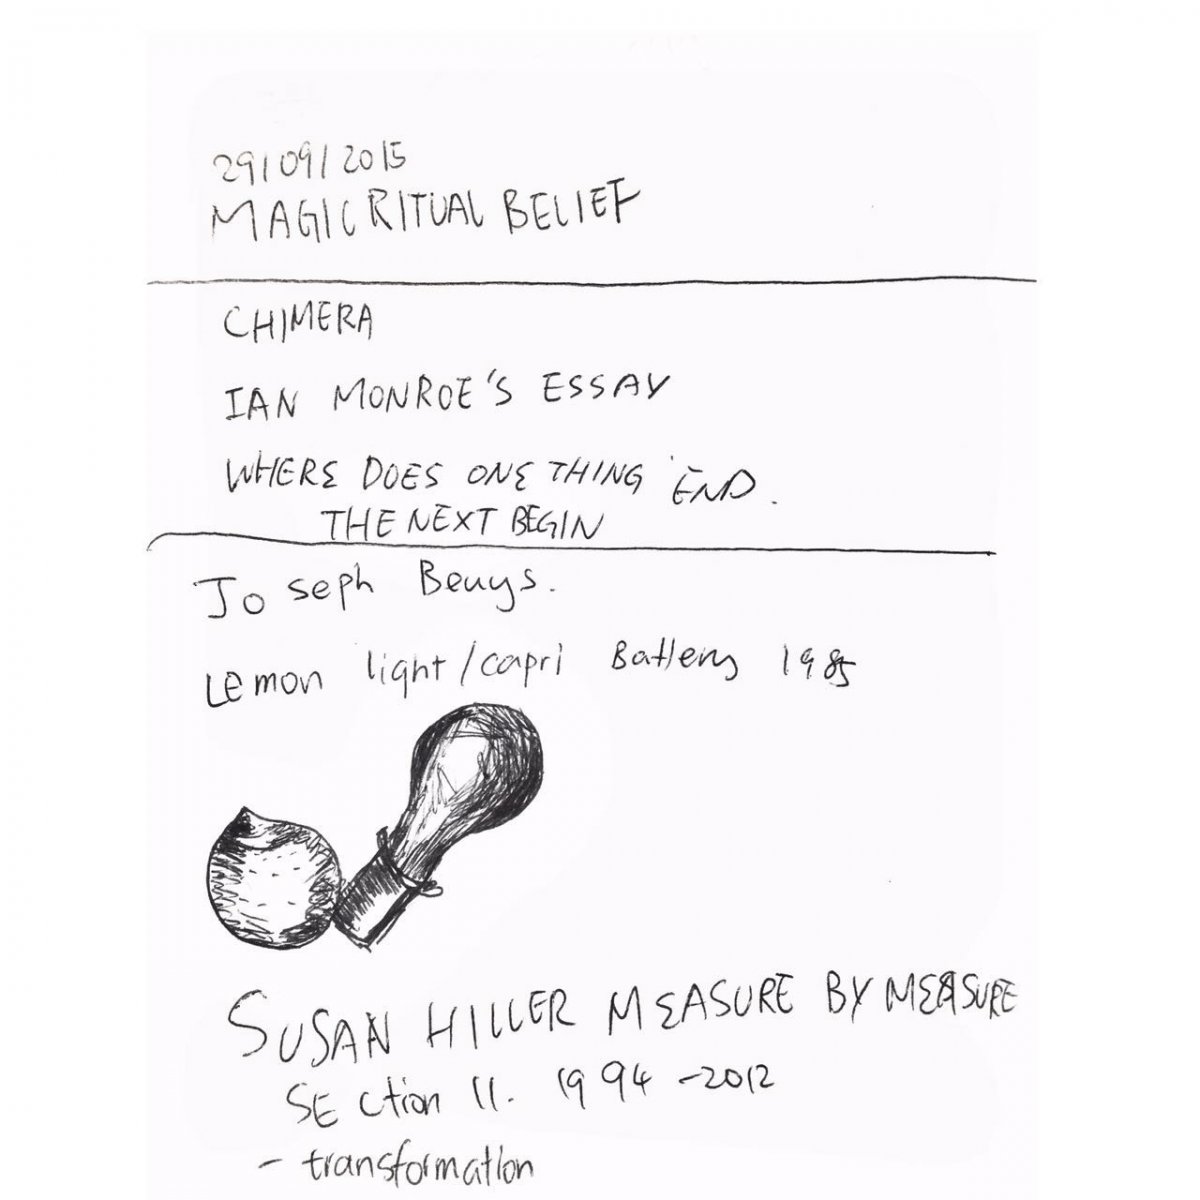 29/09/2015
MAGIC RITUAL BELIEF
CHIMERA
IAN MONROE'S ESSAY
WHERE DOES ONE THING END.
THE NEXT BEGIN
Joseph Beuys.
Lemon light/capri Battery 1985
SUSAN HILLER MEASURE BY MEASURE
SEction II. 1994-2012
- transformation